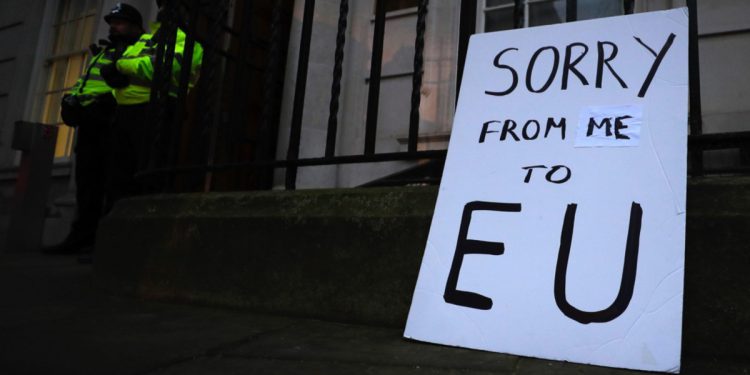 SORRY
FROM ME
TO
EU